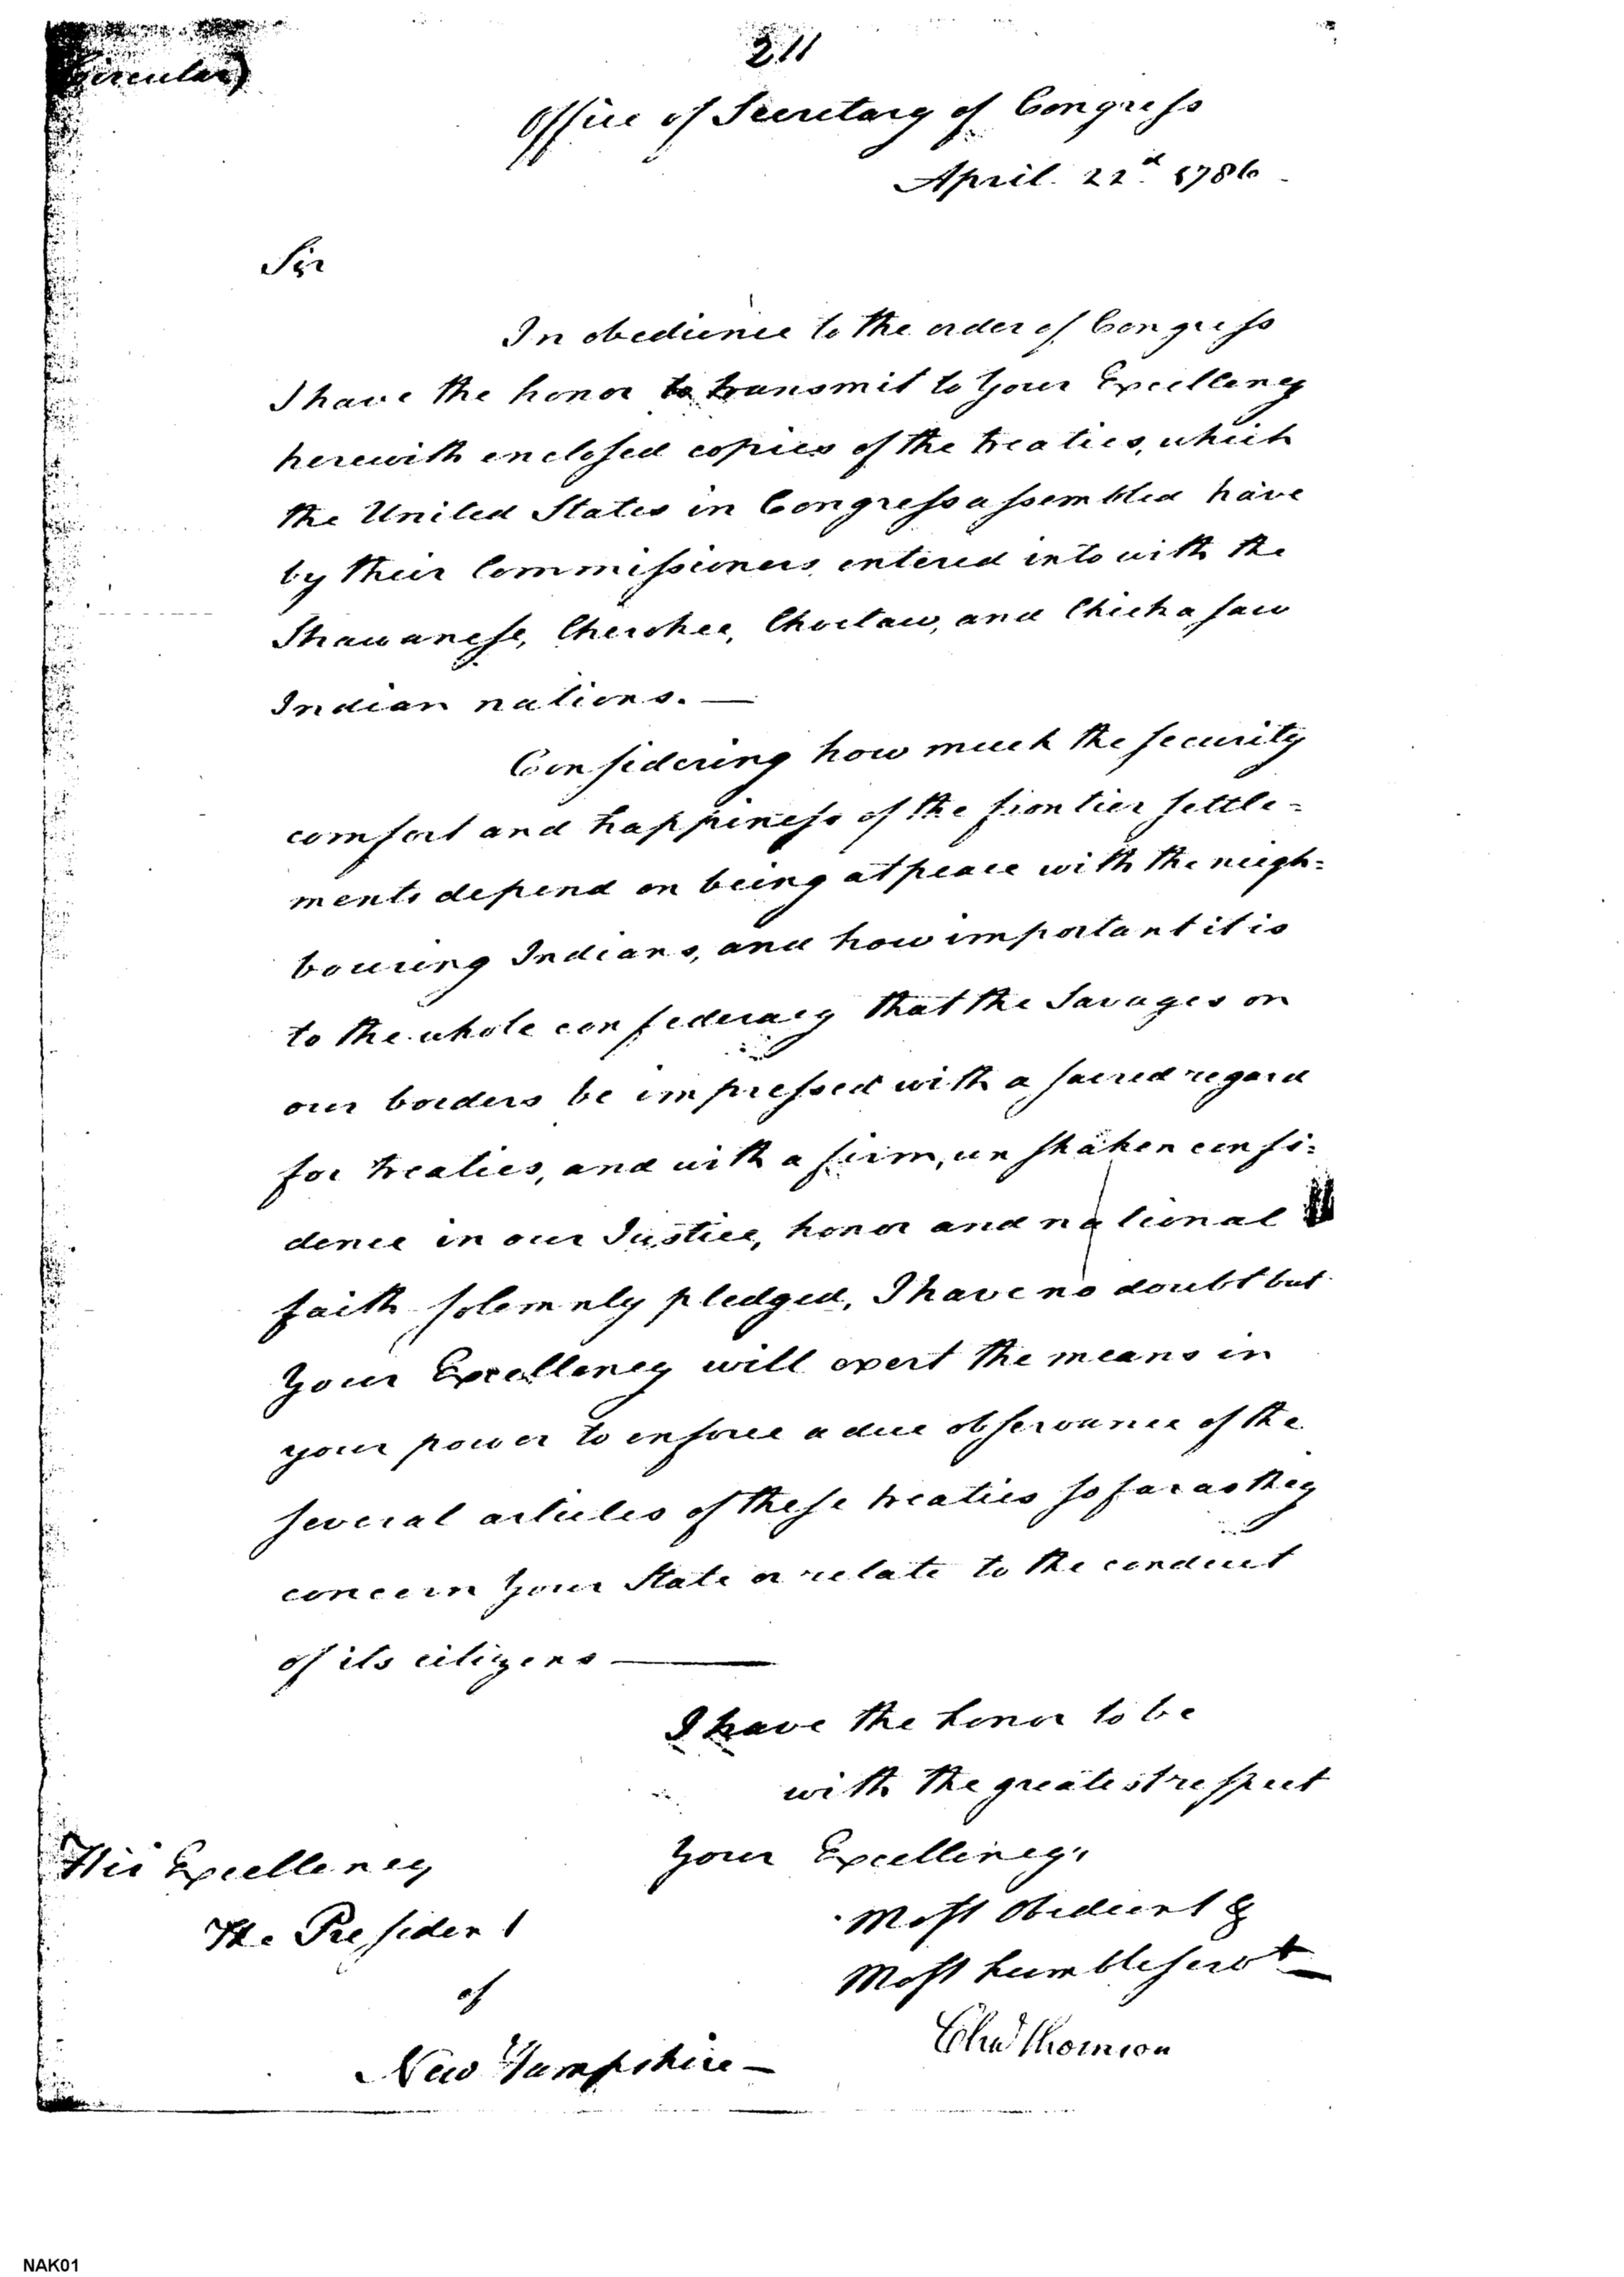 211
(Circular)
Office of Secretary of Congress
April. 22d. 1786
Sir
In obedience to the order of Congress
I have the honor to transmit to Your Excellency
herewith enclosed copies of the treaties, which
the United States in Congress assembled have
by their Commissioners entered into with the
Shawanese, Cherokee, Choctaw, and Chickasaw
Indian nations. —
Considering how much the security
comfort and happiness of the frontier settle=
ments depend on being at peace with the neigh=
bouring Indians, and how important it is
to the whole confederacy that the Savages on
our borders be impressed with a sacred regard
for treaties, and with a firm, unshaken confi=
dence in our Justice, honor and national
faith solemnly pledged, I have no doubt but
Your Excellency will exert the means in
your power to enforce a due observance of the
several articles of these treaties so far as they
concern Your State or relate to the conduct
of its citizens —
I have the honor to be
with the greatest respect
Your Excellency's
Most Obedient &
Most humble servt
Chas Thomson
His Excellency
The President
of
New Hampshire —
NAK01